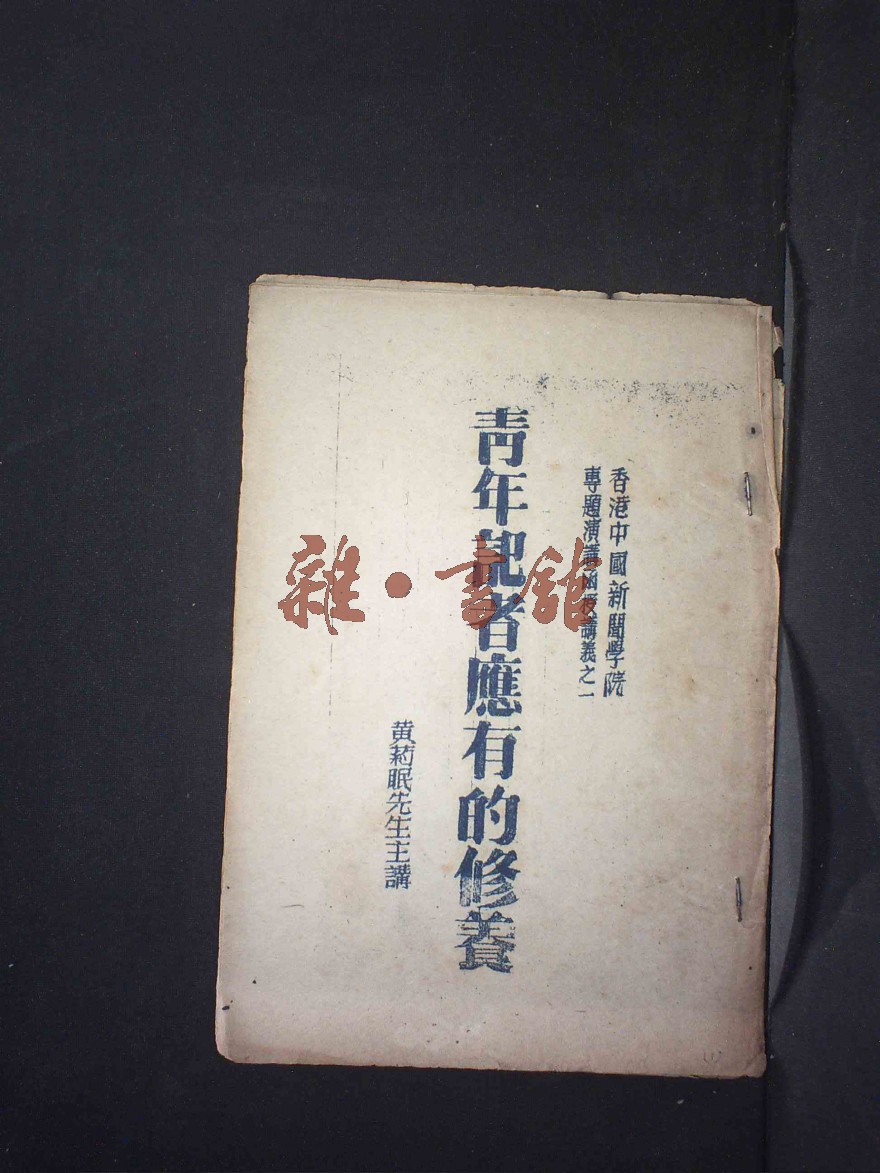 香港中國新聞學院
專題演講函授講義之一
青年記者應有的修養
黃葯眠先生主講
雜·書館